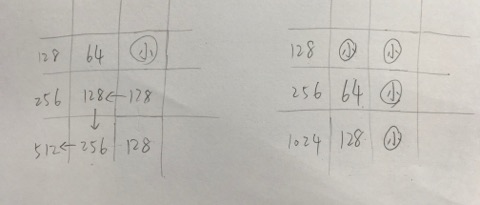 128 64 小
256 128←128
↓
512←256 128
128 小 小
256 64 小
1024 128 小